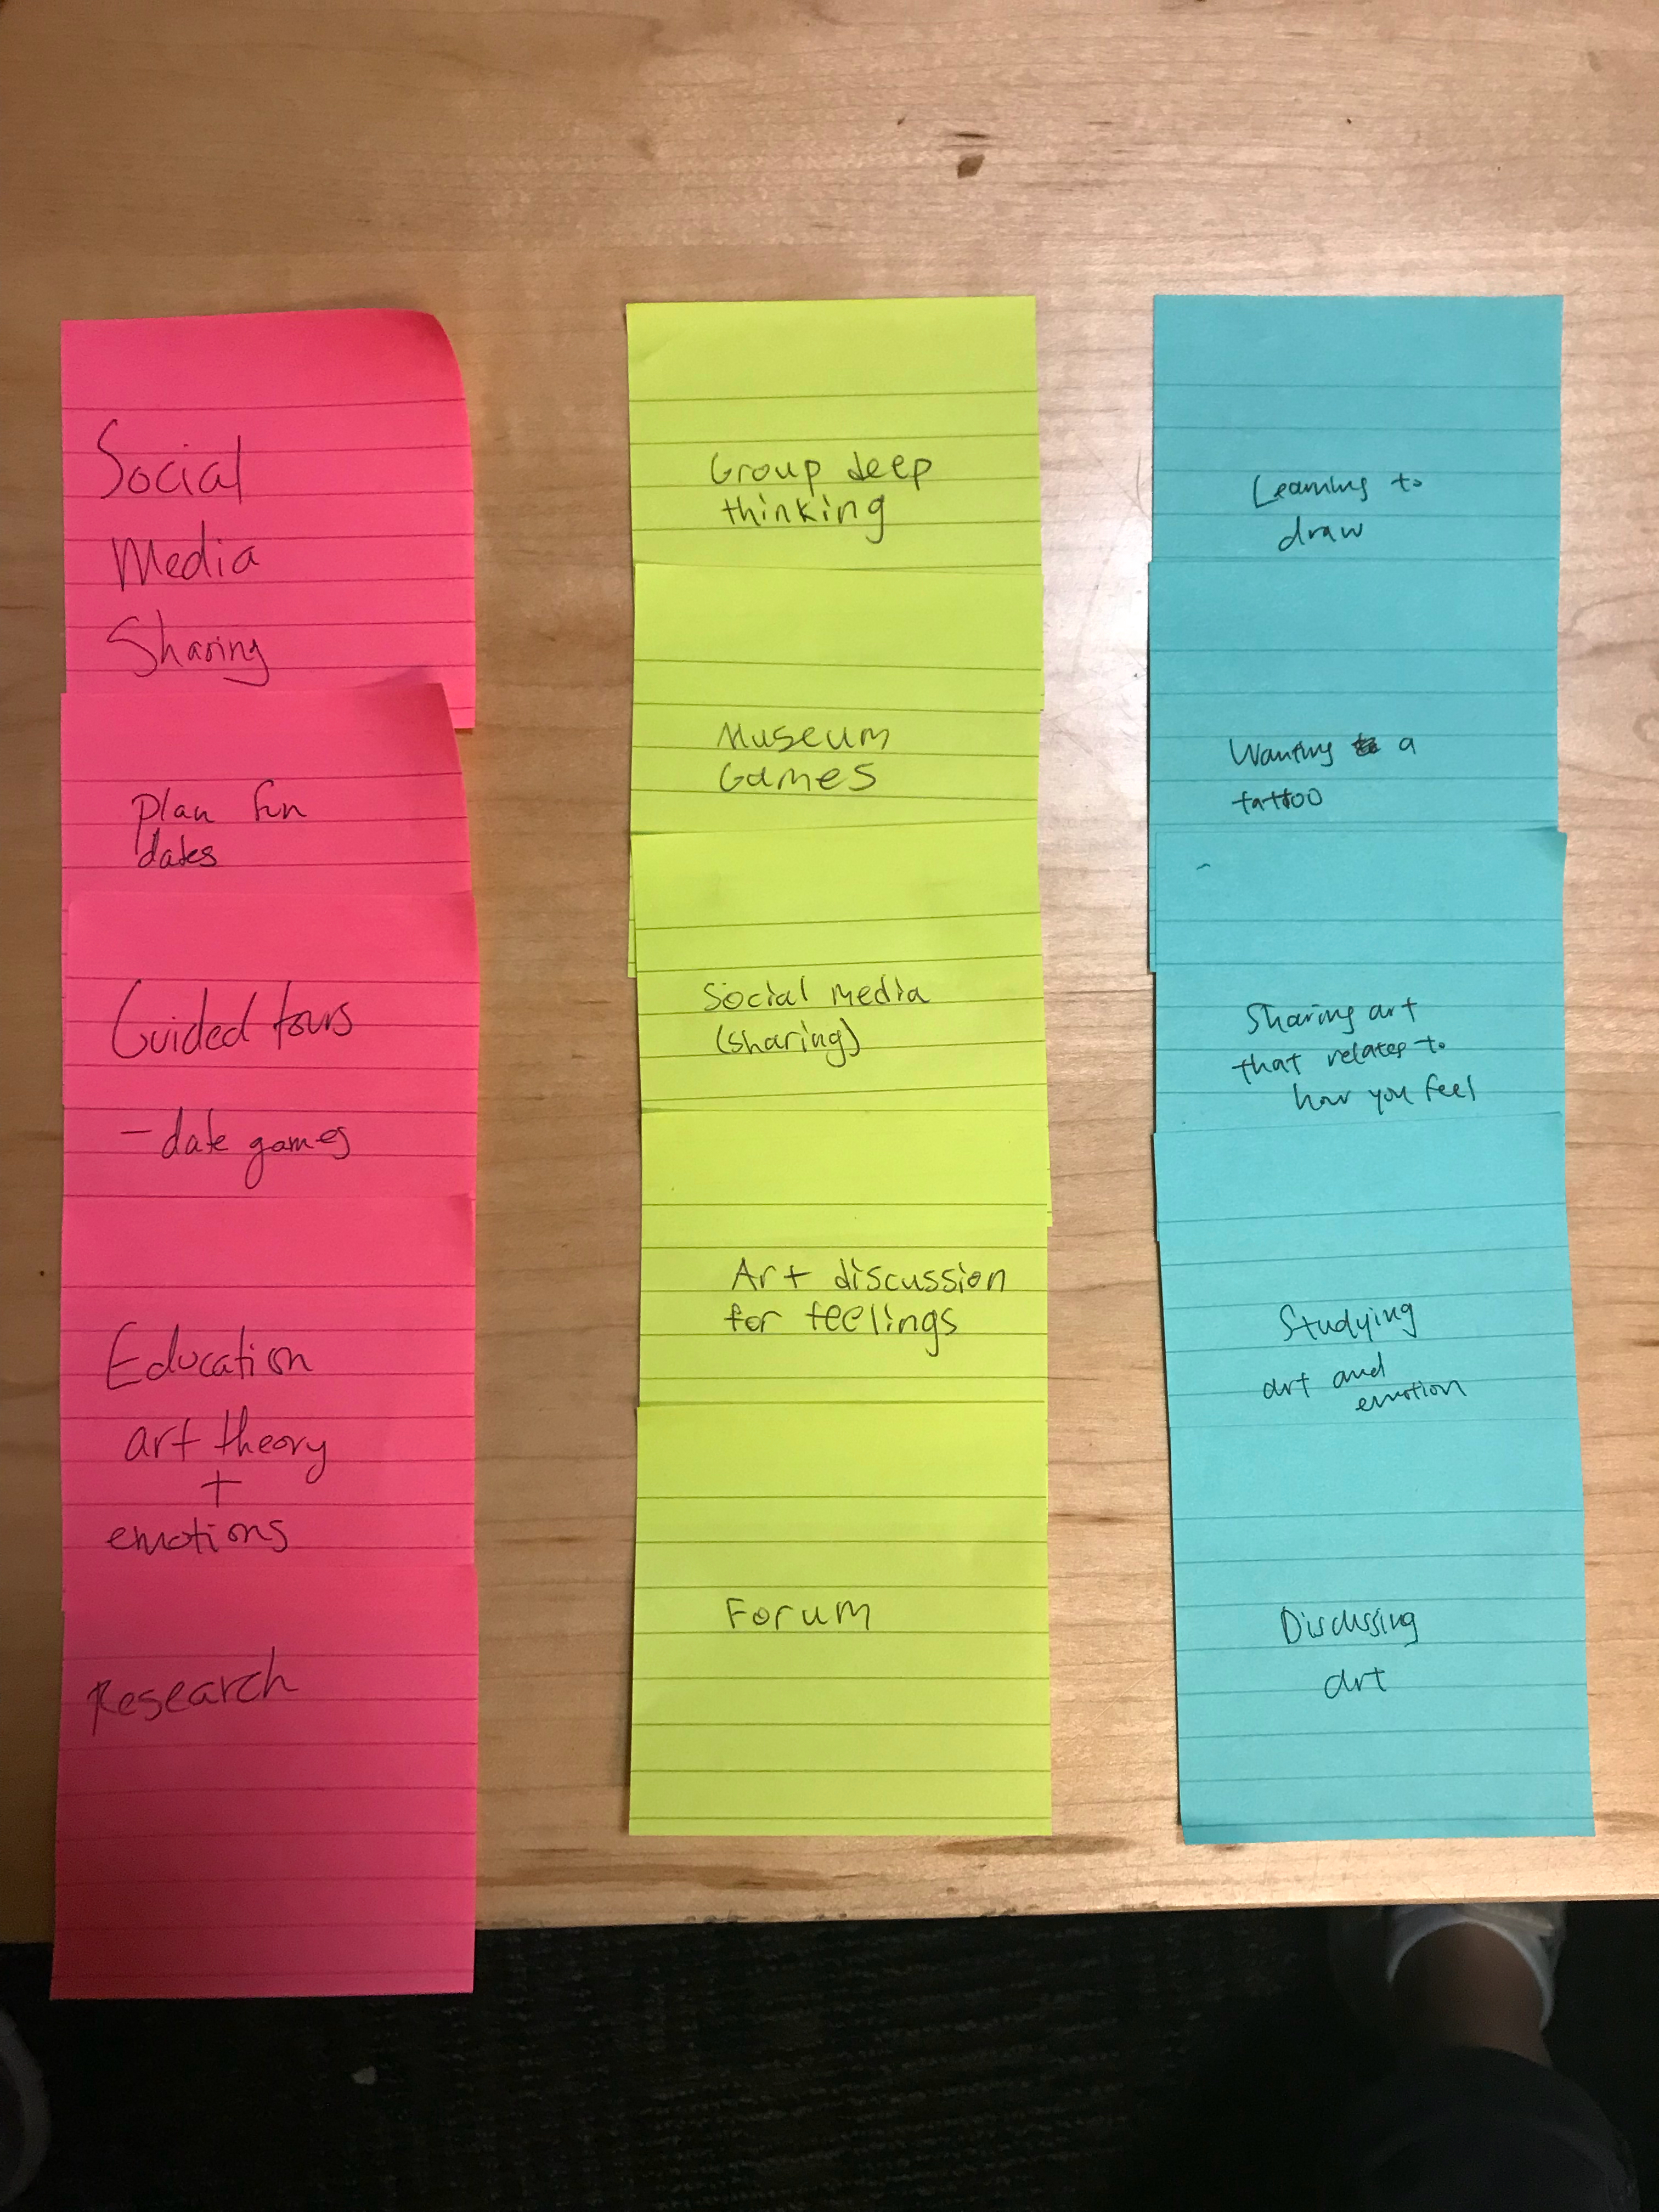 Social
Media
Sharing
Plan fun
dates
Guided tours
- date games
Education
art theory
+
emotions
Research
Group deep
thinking
Museum
Games
Social media
(sharing)
Art discussion
for feelings
Forum
Learning to
draw
Wanting a
tattoo
Sharing art
that relates to
how you feel
Studying
art and
emotion
Discussing
art